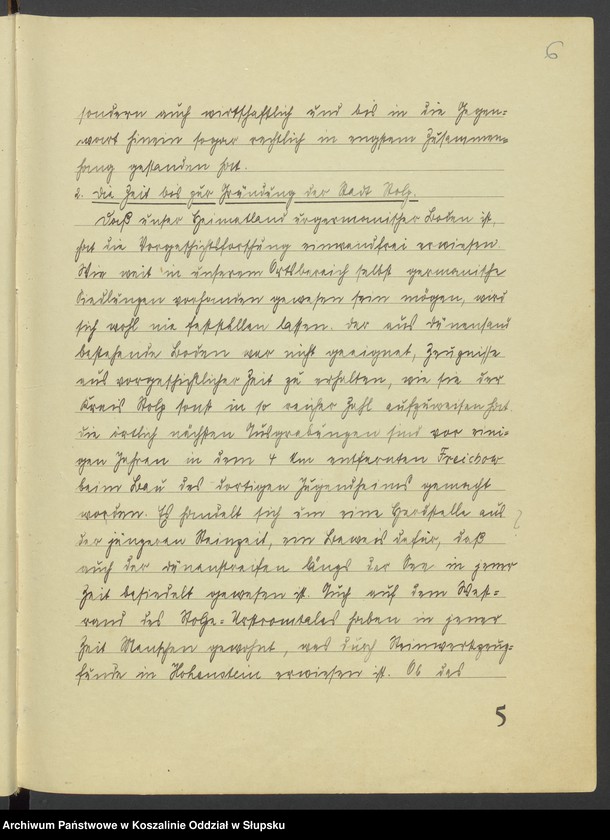 6
sondern auch wirtschaftlich und bis in die Gegen=
wart hinein sogar rechtlich in engstem Zusammen=
hang gestanden hat.
2. Die Zeit bis zur Gründung der Stadt Stolp.
Daß unser Heimatland urgermanischer Boden ist,
hat die Vorgeschichtsforschung einwandfrei erwiesen.
Wie weit in unserem Ortsbereich selbst germanische
Siedlungen vorhanden gewesen sein mögen, wird
sich wohl nie feststellen lassen. Der aus Dünensand
bestehende Boden war nicht geeignet, Zeugnisse
aus vorgeschichtlicher Zeit zu erhalten, wie sie der
Kreis Stolp sonst in so reicher Zahl aufzuweisen hat.
Die örtlich nächsten Ausgrabungen sind vor eini=
gen Jahren in dem 4 km entfernten Freichow
beim Bau des dortigen Jugendheims gemacht
worden. Es handelt sich um eine Herdstelle aus
der jüngeren Steinzeit, ein Beweis dafür, daß
auch der Dünenstreifen längs der See in jener
Zeit besiedelt gewesen ist. Auch auf dem West=
rand des Stolpe-Urstromtales haben in jener
Zeit Menschen gewohnt, was durch Steinwerkzeug=
funde in Hohenstein erwiesen ist. Ob das
5
Archiwum Państwowe w Koszalinie Oddział w Słupsku